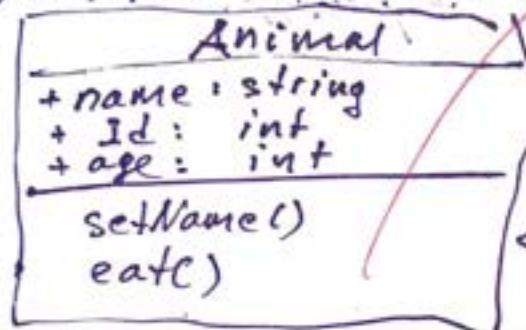 Animal
+ name : string
+ Id : int
+ age : int
setName()
eat()